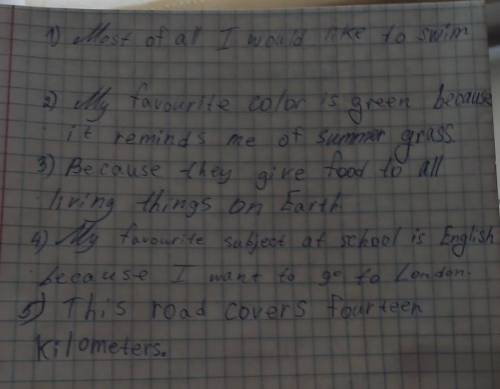 1) Most of all I would like to swim
2) My favourite color is green because
it reminds me of summer grass.
3) Because they give food to all
living things on Earth.
4) My favourite subject at school is English
because I want to go to London.
5) This road covers fourteen
kilometers.